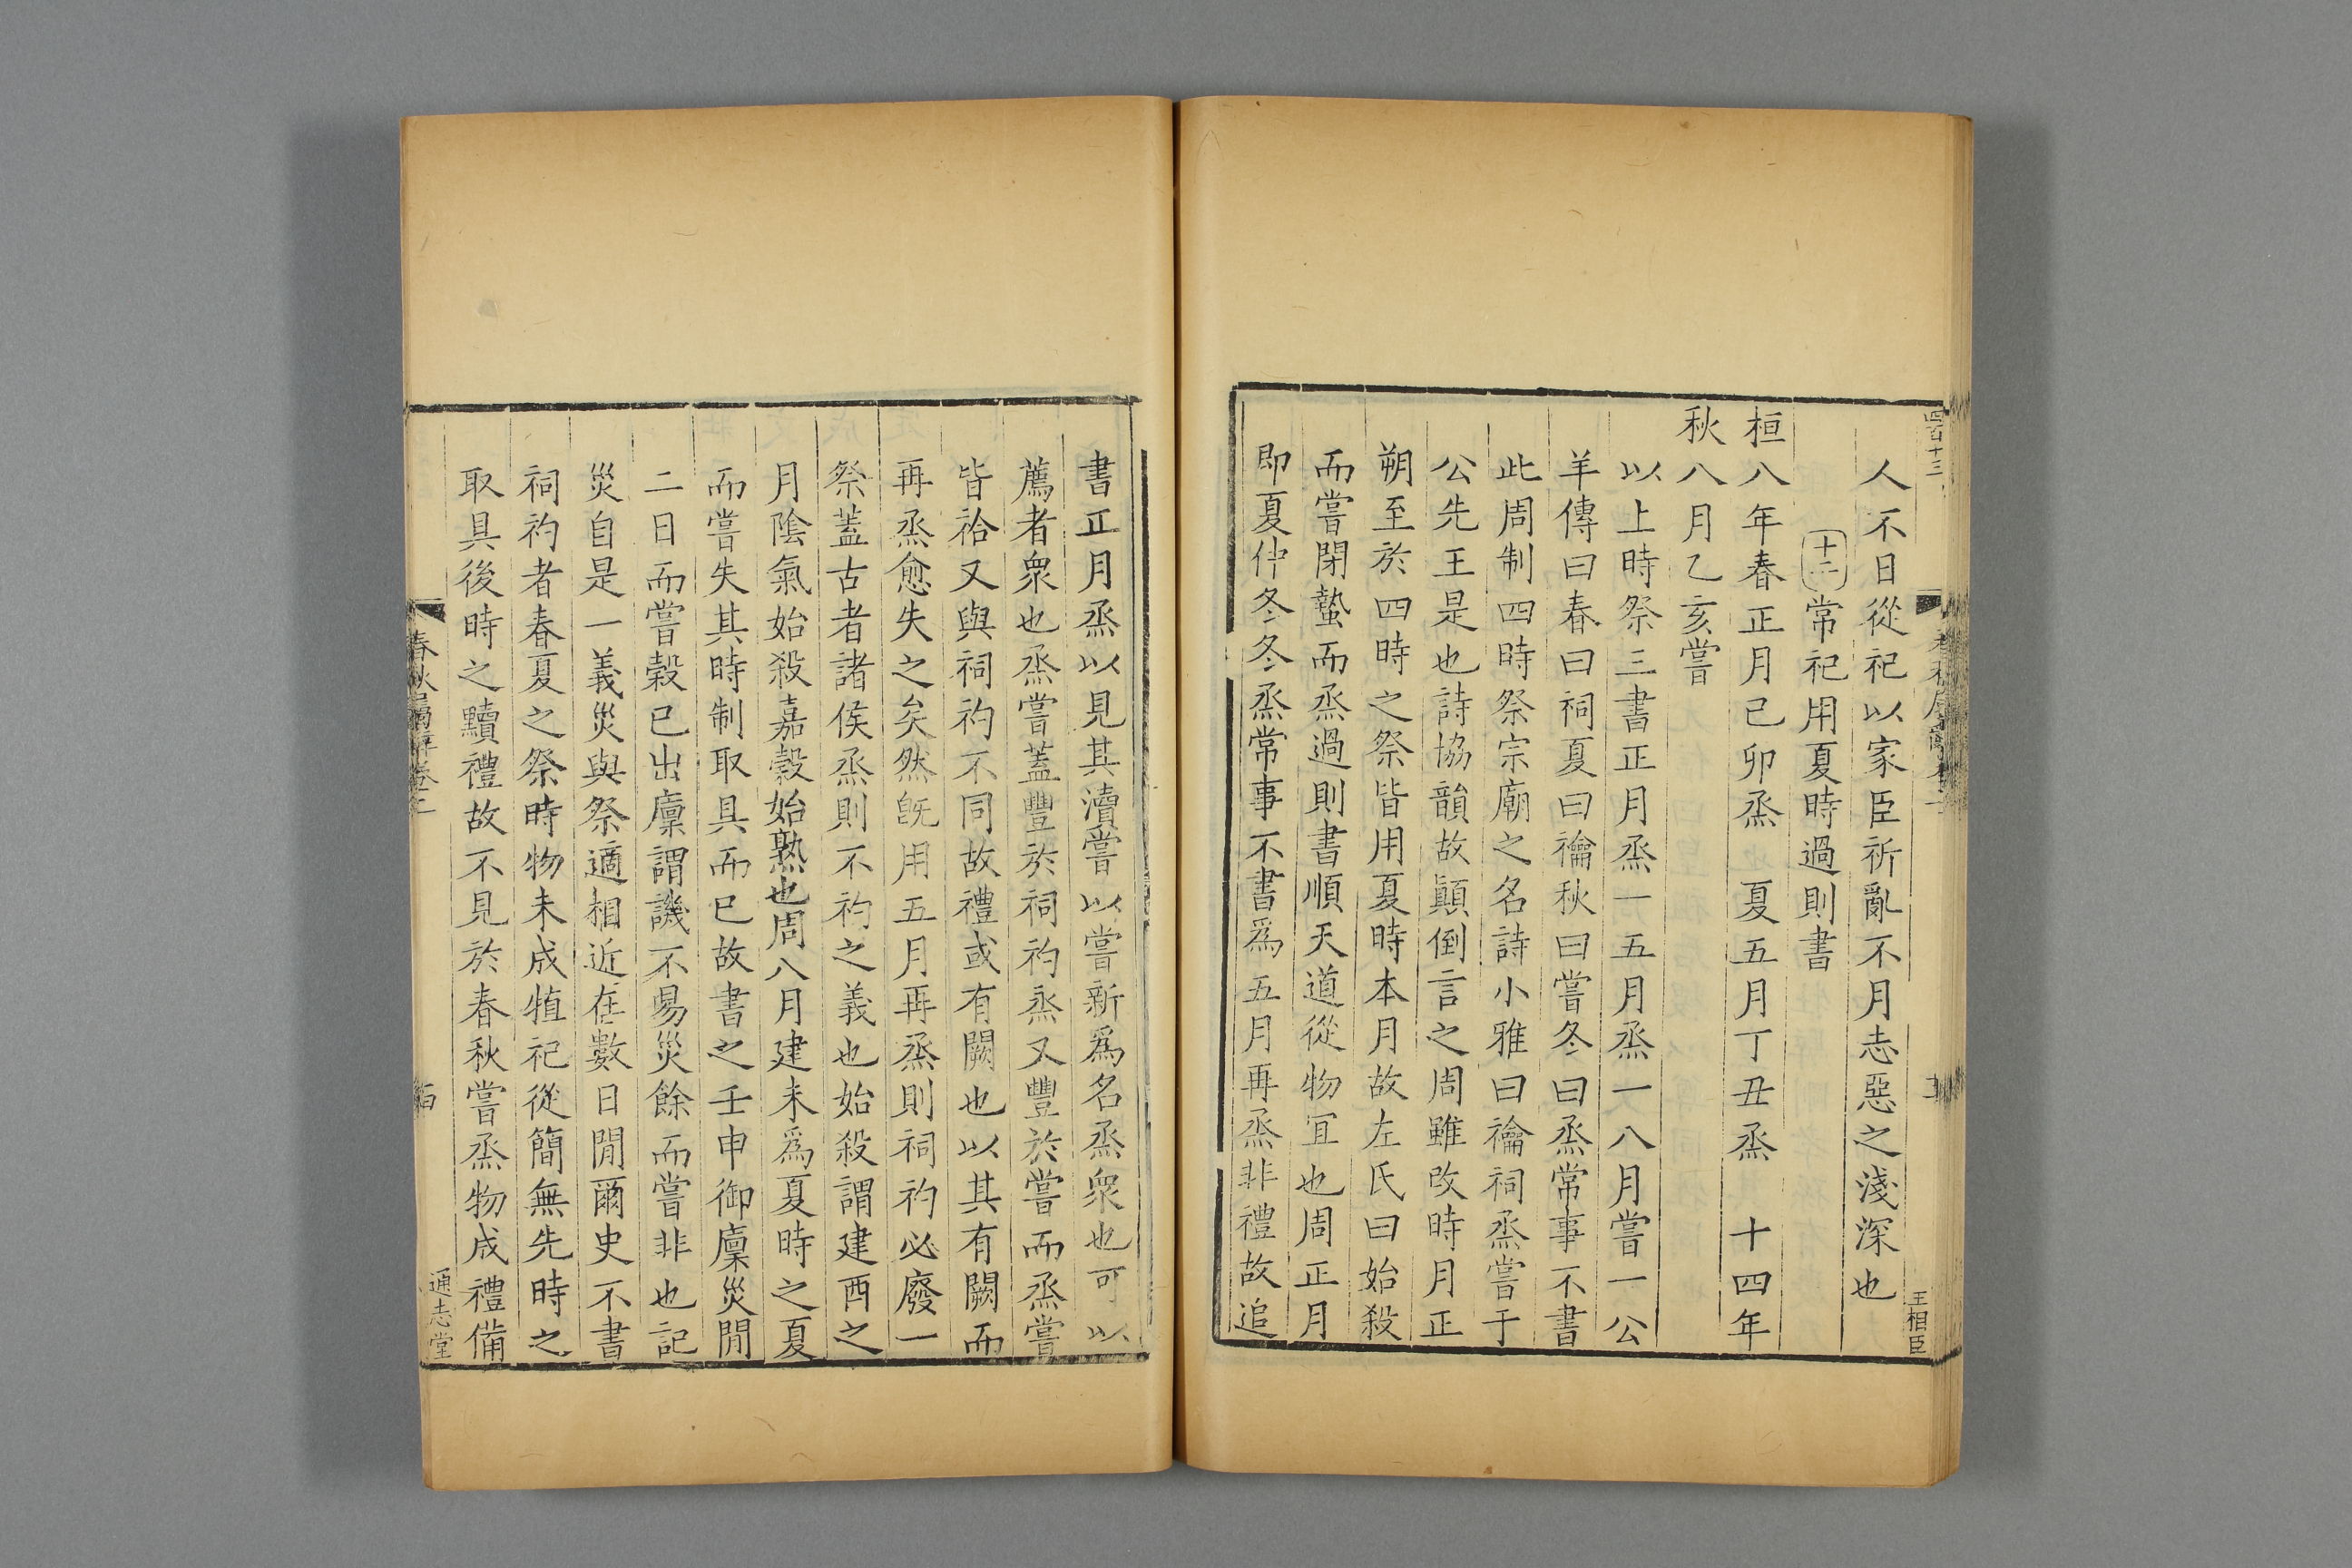 四百十三
王相臣
人不日從祀以家臣祈亂不月志惡之淺深也
十二常祀用夏時過則書
桓八年春正月己卯烝 夏五月丁丑烝 十四年
秋八月乙亥嘗
以上時祭三書正月烝一五月烝一八月嘗一公
羊傳曰春曰祠夏曰禴秋曰嘗冬曰烝常事不書
此周制四時祭宗廟之名詩小雅曰禴祠烝嘗于
公先王是也詩協韻故顛倒言之周雖改時月正
朔至於四時之祭皆用夏時本月故左氏曰始殺
而嘗閉蟄而烝過則書順天道從物宜也周正月
即夏仲冬冬烝常事不書爲五月再烝非禮故追
書正月烝以見其瀆嘗以嘗新爲名烝衆也可以
薦者衆也烝嘗蓋豐於祠礿烝又豐於嘗而烝嘗
皆祫又與祠礿不同故禮或有闕也以其有闕而
再烝愈失之矣然旣用五月再烝則祠礿必廢一
祭蓋古者諸侯烝則不礿之義也始殺謂建酉之
月陰氣始殺嘉穀始熟也周八月建未爲夏時之夏
而嘗失其時制取具而已故書之壬申御廩災閒
二日而嘗穀已出廩謂譏不易災餘而嘗非也記
災自是一義災與祭適相近在數日閒爾史不書
祠礿者春夏之祭時物未成犆祀從簡無先時之
取具後時之黷禮故不見於春秋嘗烝物成禮備
春秋屬辭卷二
通志堂